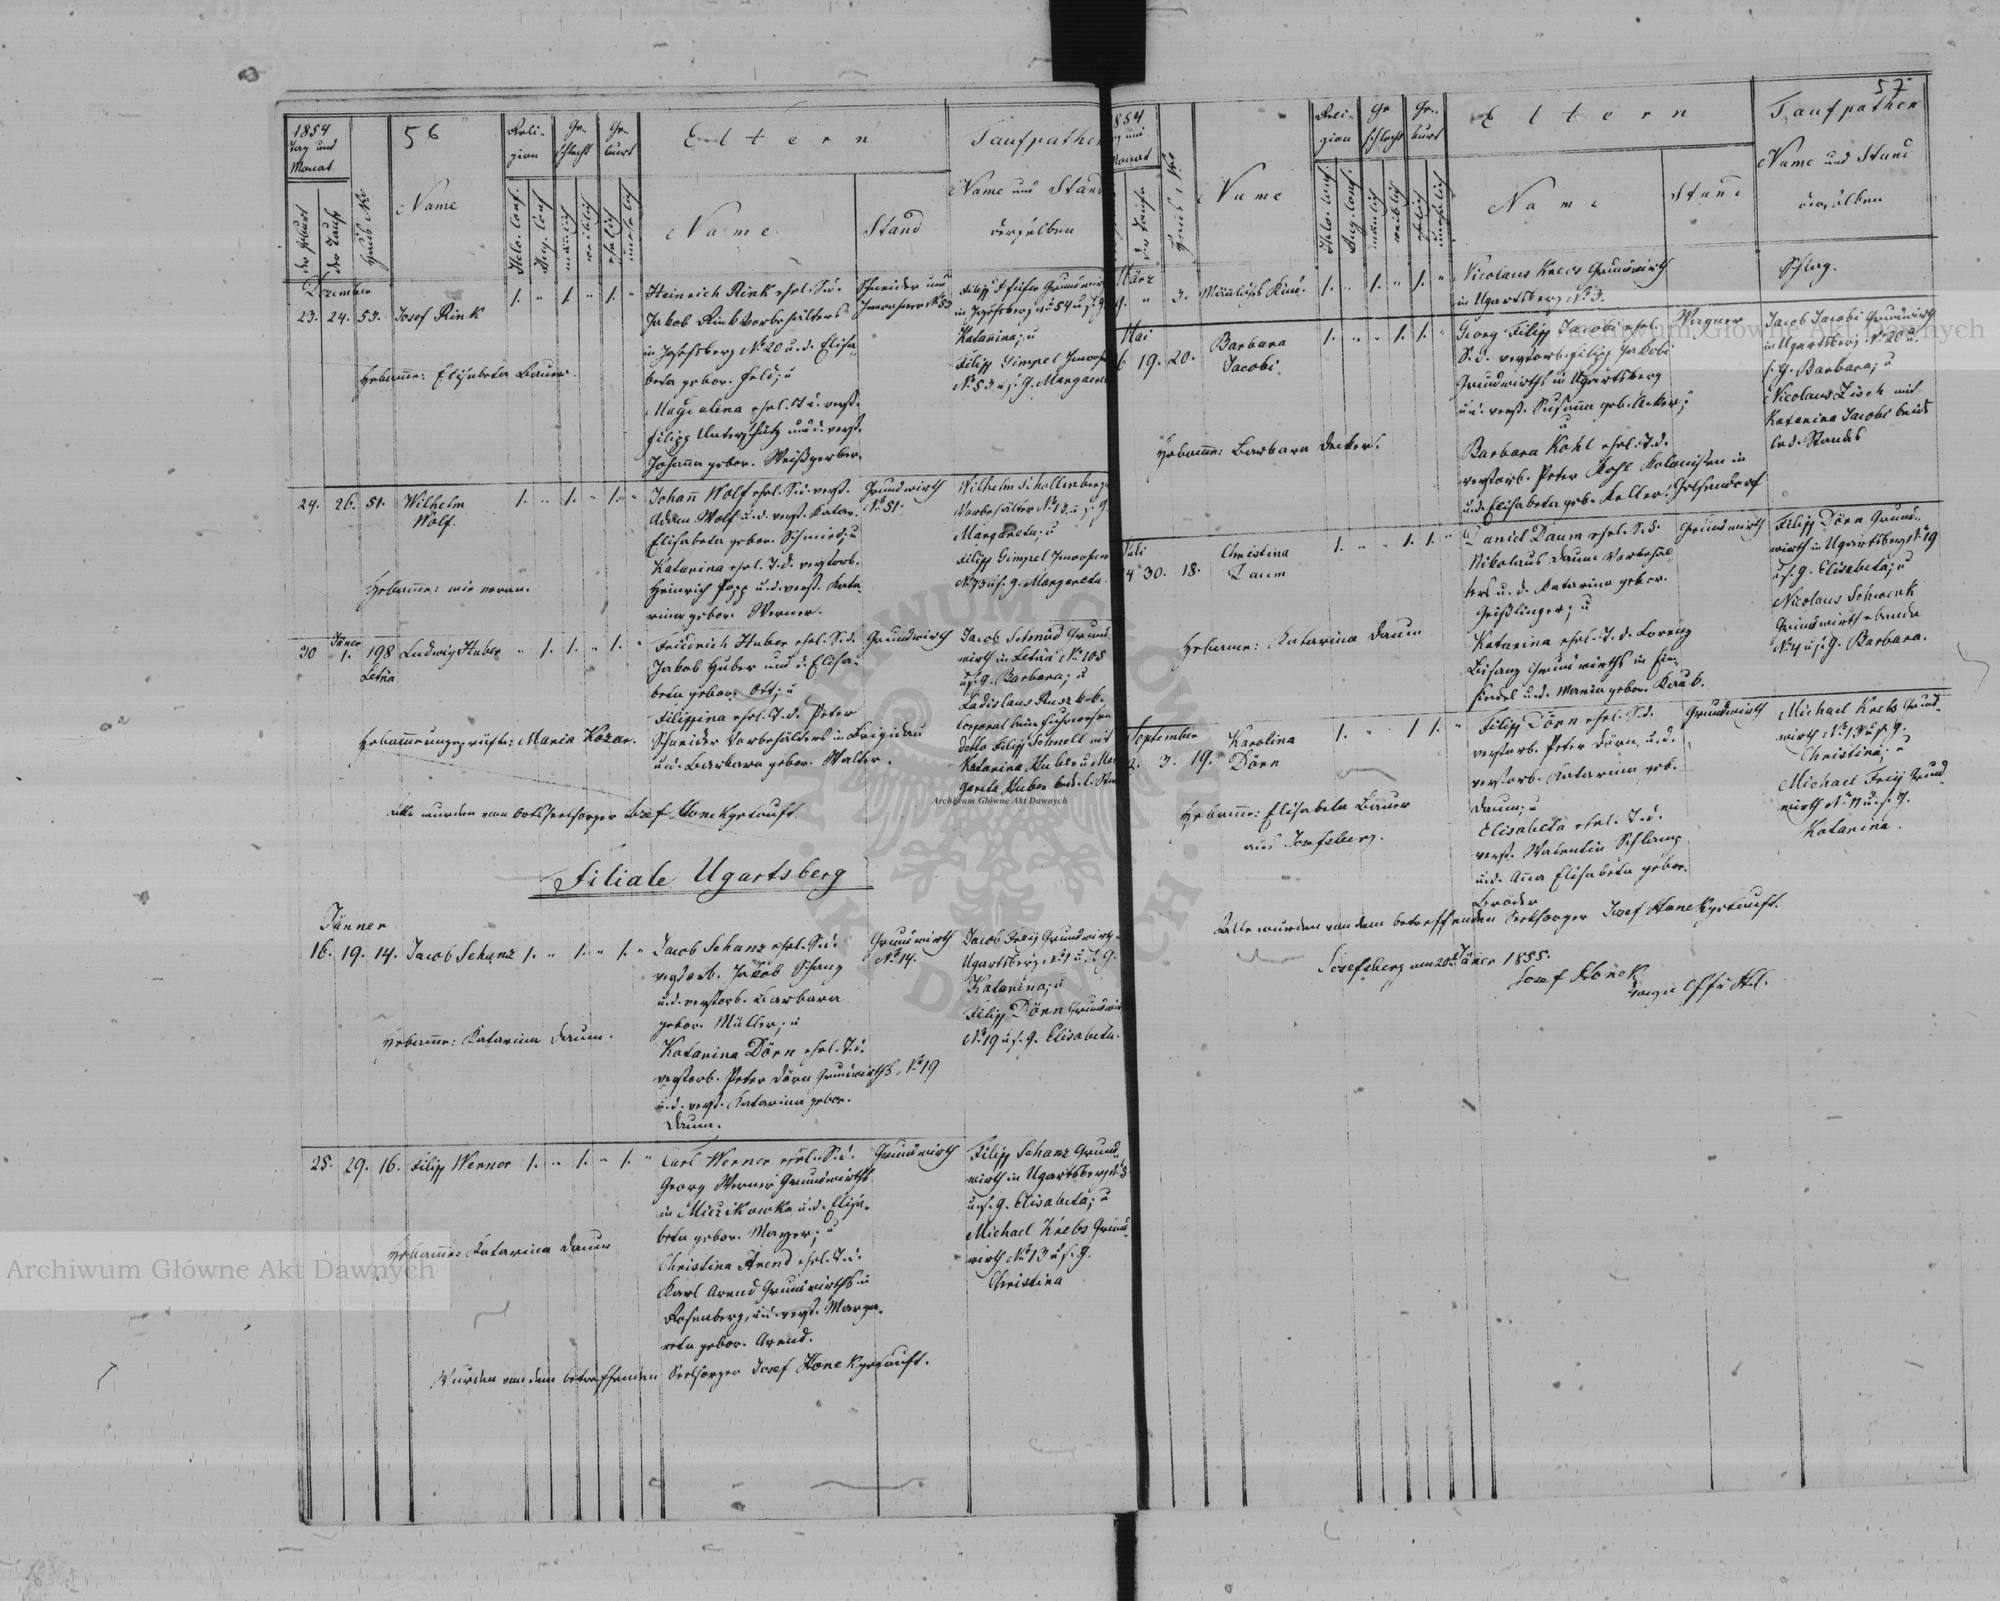 56
1854
Tag und
Monat
der Geburt
der Taufe
Haus Nro
Name
Religion
Helv. Conf.
Aug. Conf.
Geschlecht
männlich
weiblich
Geburt
ehelich
unehelich
Eltern
Name
Stand
Taufpathen
Name und Stand
derselben
Dezember
23. 24. 53. Josef Rink 1. " 1. " 1. "
Heinrich Rink ehel. S. d.
Jakob Rink Vorbehälters
in Josefsberg No 20 u. d. Elisa-
beta gebor. Feld; u
Magdalena ehel. T. d. verst.
Filipp Unterschütz und d. verst.
Johanna gebor. Weißgerber.
Schneider und
Inwohner No 53
Katarina; u
Filipp Gimpel
No 53 u s. G.
Hebamme: Elisabeta Bauer.
24. 26. 51. Wilhelm
Wolf.
1. " 1. " 1. "
Johann Wolf ehel. S. d. verst.
Adam Wolf u. d. verst. Katar.
Elisabeta gebor. Schmied; u
Katarina ehel. T. d. verstorb.
Heinrich Popp u. d. verst. Kata
rina gebor. Werner.
Grundwirth
No 51.
Wilhelm Schollenberger
Margareta; u
Filipp Gimpel
u s. G. Margareta.
Hebamme: wie voran.
30 Jäner
1. 198
Letnia
Ludwig Huber " 1. 1. " 1. "
Friedrich Huber ehel. S. d.
Jakob Huber und d. Elisa-
beta gebor. Ott; u
Filippina ehel. T. d. Peter
Schneider Vorbehälters in Brigidau
u. d. Barbara gebor. Walter.
Grundwirth
Jacob Schmid Grund-
wirth in Letnia No 105
u s. G. Barbara; u
Ladislaus
detto Filipp Schnell mit
Katarina Huber u Mar
gareta Huber
Hebamme ungeprüfte: Maria Kozar.
Alle wurden vom Ortsseelsorger Josef Honek getauft.
Filiale Ugartsberg
Jänner
16. 19. 14. Jacob Schanz 1. " 1. " 1. "
Jacob Schanz ehel. S. d.
verstorb. Jakob Schanz
u. d. verstorb. Barbara
gebor. Müller; u
Katarina Dörn ehel. T. d.
verstorb. Peter Dörn Grundwirths No 19
u. d. verst. Katarina gebor.
Daum.
Grundwirth
No 14.
Jacob Frey Grundwirth
Ugartsberg No 1 u s. G.
Katarina; u
Filipp Dörn Grundwirth
No 19 u s. G. Elisabeta.
Hebamme: Katarina Daum.
25. 29. 16. Filipp Werner 1. " 1. " 1. "
Carl Werner ehel. S. d.
Georg Werner Grundwirths
in Mierikowka u. d. Elisa-
beta gebor. Mayer; u
Christina Arend ehel. T. d.
Karl Arend Grundwirths in
Rosenberg, u. d. verst. Marga-
reta gebor. Arend.
Grundwirth
Filipp Schanz Grund-
wirth in Ugartsberg No 3
u s. G. Elisabeta; u
Michael Krebs Grund-
wirth No 13 u s. G.
Christina
Hebamme: Katarina Daum
Wurden von dem betreffenden Seelsorger Josef Honek getauft.
57
1854
Tag und
Monat
der Taufe
Haus Nro
Name
Religion
Helv. Conf.
Aug. Conf.
Geschlecht
männlich
weiblich
Geburt
ehelich
unehelich
Eltern
Name
Stand
Taufpathen
Name und Stand
derselben
März
" 3. Männliches Kind. 1. " 1. " 1. "
Nicolaus Krebs Grundwirth
in Ugartsberg No 3.
Mai
19. 20. Barbara
Jacobi.
1. " " 1. 1. "
Georg Filipp Jacobi ehel.
S. d. verstorb. Filipp Jakobi
Grundwirths in Ugartsberg
u. d. verst. Susanna geb. Acker;
u
Barbara Kohl ehel. T. d.
verstorb. Peter Kohl Kolonisten in
u. d. Elisabeta geb. Keller.
Wagner
Jacob Jacobi Grundwirth
in Ugartsberg No 20 u.
s. G. Barbara; u
Nicolaus Zisch mit
Katarina Jacobi beide
led. Standes
Hebamme: Barbara Decker.
Juli
30. 18. Christina
Daum
1. " " 1. 1. "
Daniel Daum ehel. S. d.
Nikolaus Daum Vorbehäl
ters u. d. Katarina gebor.
Geißlinger; u
Katarina ehel. T. d. Lorenz
Bisanz Grundwirths in Ein-
siedel u. d. Maria gebor. Kaub.
Grundwirth
Filipp Dörn Grund-
wirth in Ugartsberg No 19
u s. G. Elisabeta; u
Nicolaus Schwenk
Grundwirth ebenda
No 4 u s. G. Barbara.
Hebamme: Katarina Daum
September
2. 3. 19. Karolina
Dörn
1. " " 1 1. "
Filipp Dörn ehel. S. d.
verstorb. Peter Dörn, u. d.
verstorb. Katarina geb.
Daum; u
Elisabeta ehel. T. d.
verst. Valentin Schlang
u. d. Anna Elisabeta gebor.
Bräder
Grundwirth
Michael Krebs Grund-
wirth No 13 u s. G.
Christina; u
Michael Frey Grund-
wirth No 11 u. s. G.
Katarina.
Hebamme: Elisabeta Bauer
aus Josefsberg.
Alle wurden von dem betreffenden Seelsorger Josef Honek getauft.
Josefsberg am 20t Jäner 1855.
Josef Honek
Archiwum Główne Akt Dawnych
Archiwum Główne Akt Dawnych
Archiwum Główne Akt Dawnych
ARCHIWUM GŁÓWNE AKT DAWNYCH